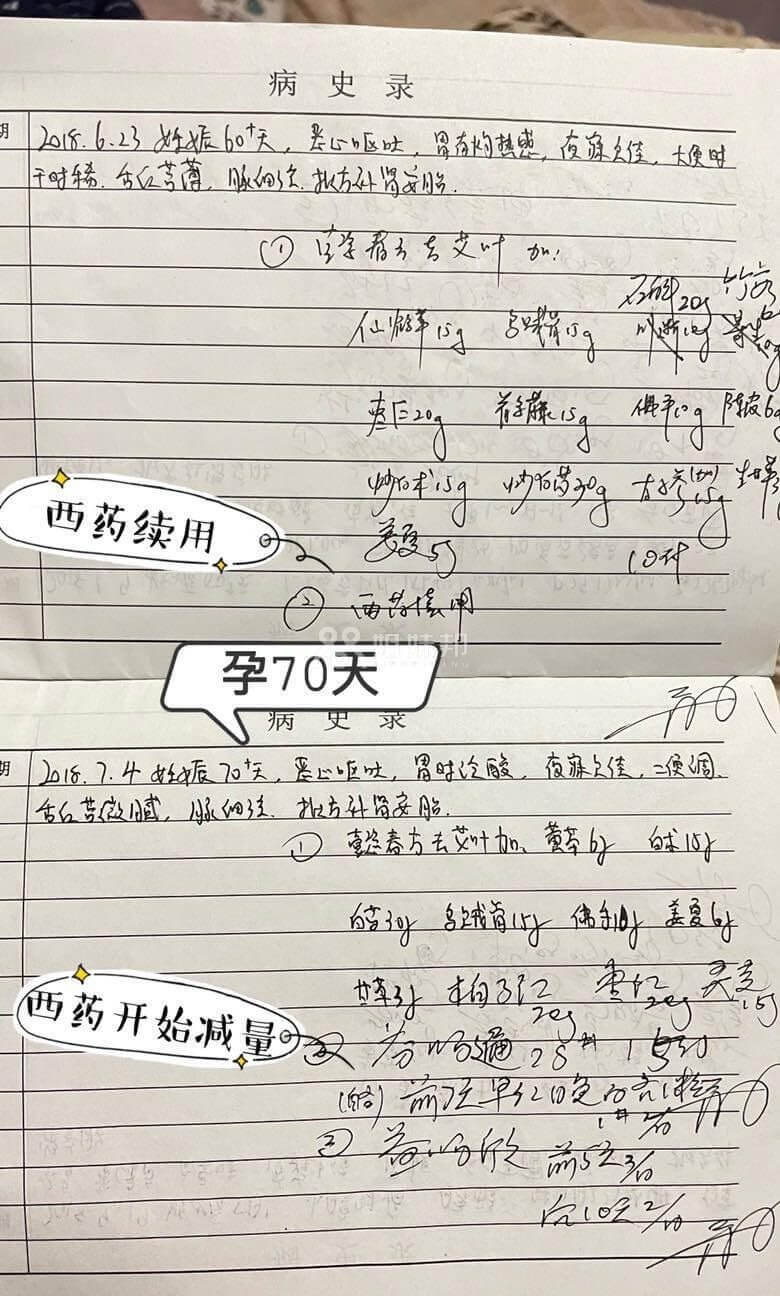 病史录
2018.6.23 妊娠60+天，恶心呕吐，胃有灼热感，夜寐欠佳，大便时
干时稀. 舌红苔薄，脉细弦. 拟方补肾安胎.
① 去艾叶 加：
石斛20g
仙鹤草15g 乌贼骨15g
枣仁20g 首乌藤15g 佛手10g 陈皮6g
炒白术15g 炒白芍30g 15g
姜夏5g 10帖
西药续用
② 西药续用
姐妹邦
孕70天
病史录
2018.7.4 妊娠70+天，恶心呕吐，胃时泛酸，夜寐欠佳，二便调.
舌红苔微腻，脉细弦. 拟方补肾安胎.
① 春方去艾叶加：黄芩6g 白术15g
白芍30g 乌贼骨15g 佛手10g 姜夏6g
甘草3g 柏子仁20g 枣仁20g 15g
西药开始减量
② 芬吗通28#
③ 益玛欣 前5天3/日
后10天2/日